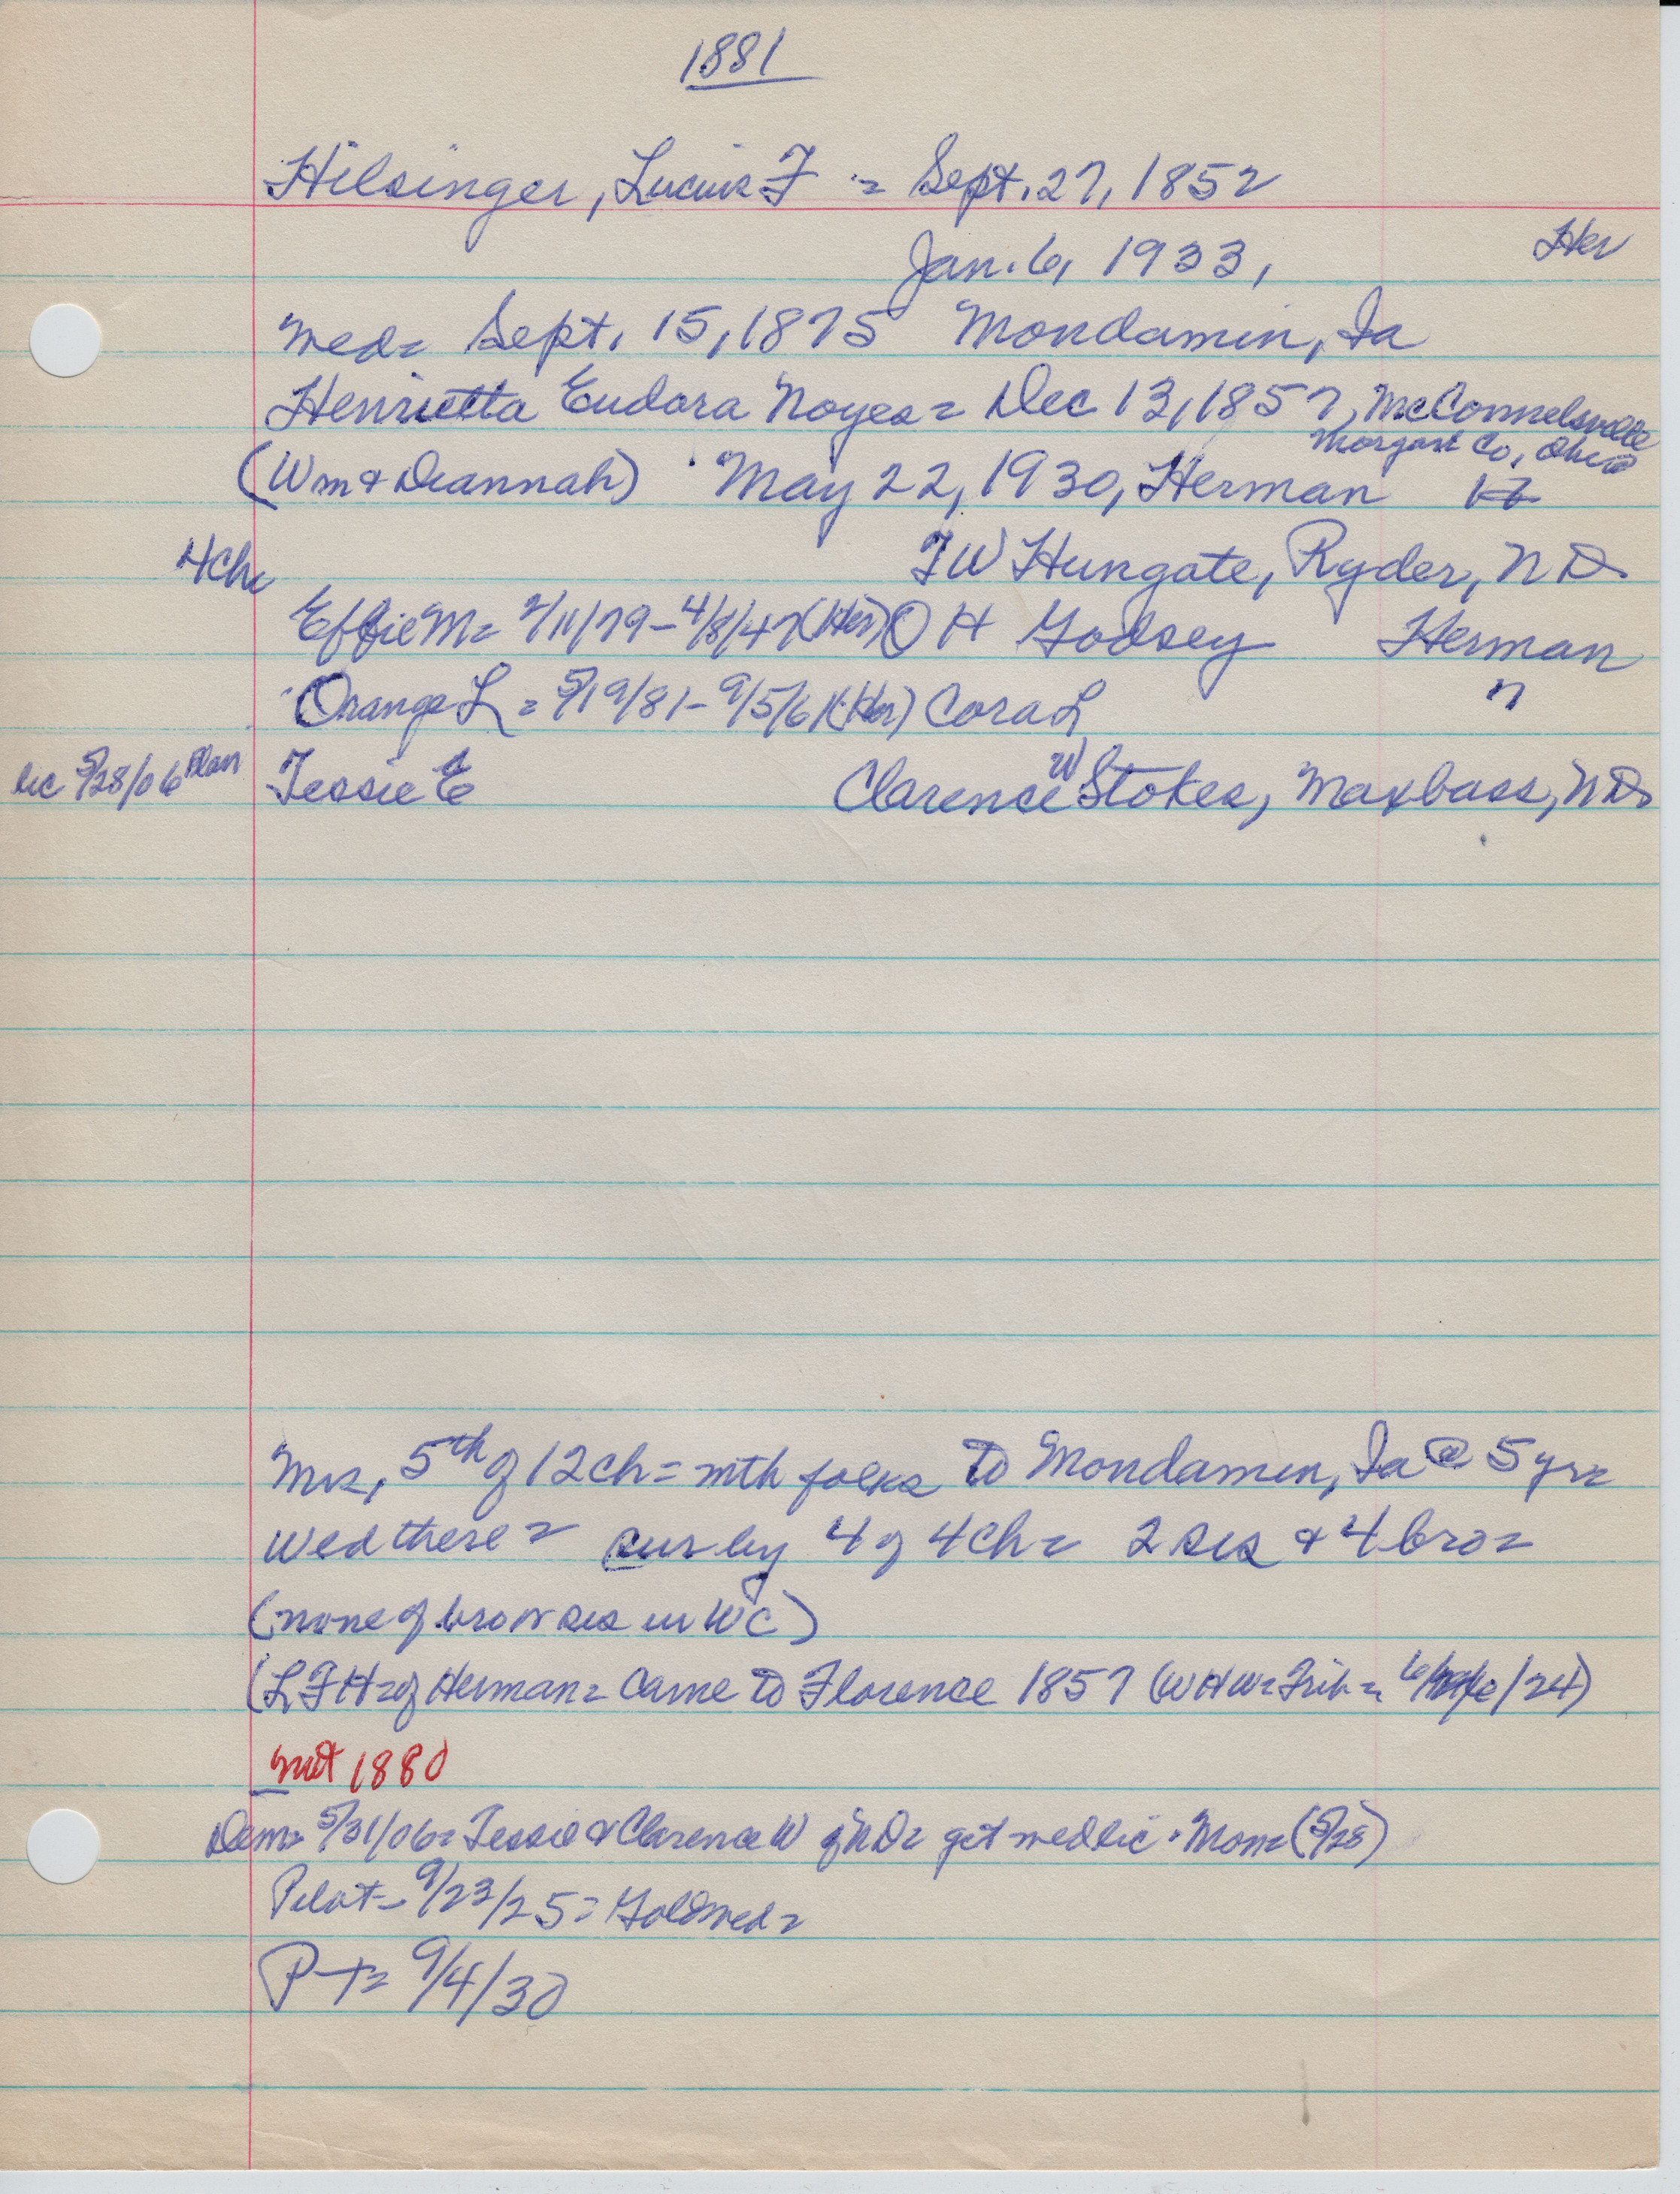 1881
Hilsinger, Lucius F = Sept. 27, 1852
Jan. 6, 1933, Her
wed = Sept. 15, 1875 Mondamin, Ia
Henrietta Eudora Noyes = Dec 13, 1857, McConnelsville
Morgan Co, Ohio
(Wm & Deannah) May 22, 1930, Herman
4ch
F W Hungate, Ryder, N D
Effie M = 2/11/79 - 4/8/47 (Her) O H Godsey Herman
Orange L = 5/19/81 - 9/5/61 (Her) Cora L "
lic 5/28/06 Jessie E Clarence W Stokes, Maxbass, N D
Mrs, 5th of 12 ch = with folks to Mondamin, Ia @ 5 yr =
wed there = sur by 4 of 4 ch = 2 sis & 4 bro =
(none of bro or sis in WC)
(L F H = of Herman = came to Florence 1857 (WHW = Trib = /24)
not 1880
Dem = 5/31/06 = Jessie & Clarence W of ND = get wed lic Mon = (5/28)
Pilot - 9/23/25 = Gold wed =
P-T = 9/4/30